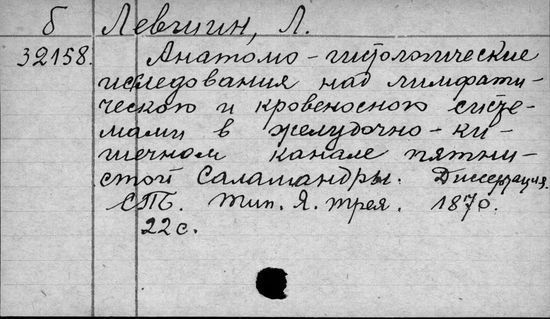 б Левшин, Л.
32158. Анатомо-гистологические
иследования над лимфати-
ческою и кровеносною систе-
мами в желудочно-ки-
шечном канале пятни-
стой Саламандры. Диссертация.
СПБ. Тип. Я. Трея. 1870.
22 с.